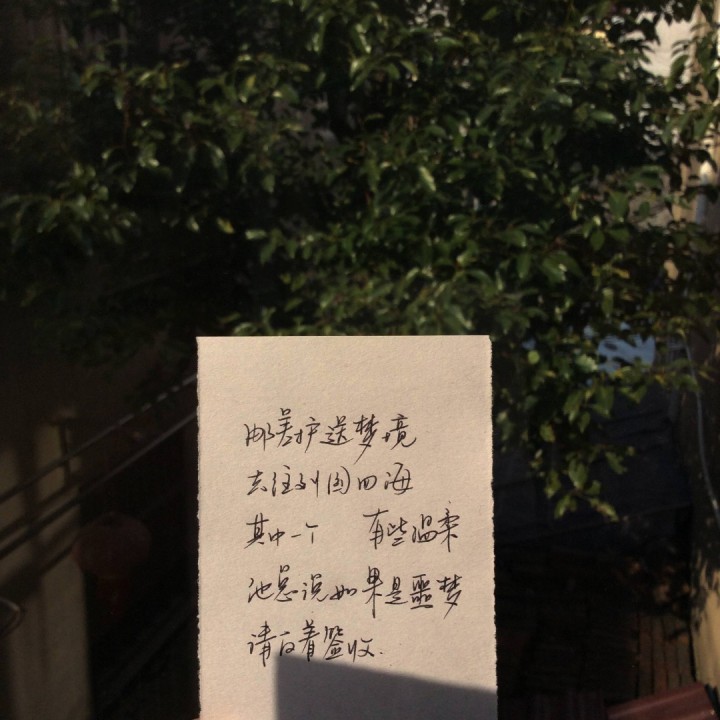 邮差护送梦境
去往列国四海
其中一个 有些温柔
他总说如果是噩梦
请百着签收.